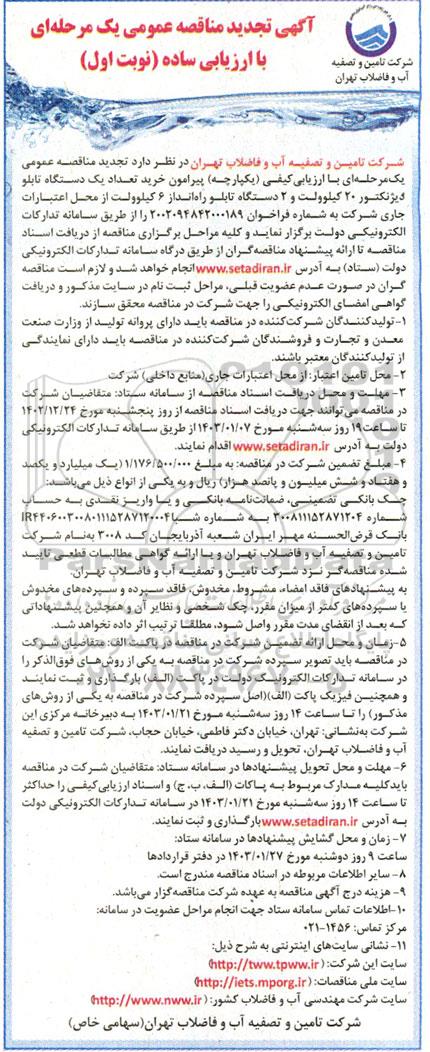 آگهی تجدید مناقصه عمومی یک مرحله‌ای
با ارزیابی ساده (نوبت اول)
شرکت تامین و تصفیه
آب و فاضلاب تهران
شرکت تامین و تصفیه آب و فاضلاب تهران در نظر دارد تجدید مناقصه عمومی
یک‌مرحله‌ای با ارزیابی‌کیفی (یکپارچه) پیرامون خرید تعداد یک دستگاه تابلو
دیژنکتور ۲۰ کیلوولت و ۲ دستگاه تابلو راه‌انداز ۶ کیلوولت از محل اعتبارات
جاری شرکت به شماره فراخوان ۲۰۰۲۰۹۴۸۴۲۰۰۰۱۸۹ را از طریق سامانه تدارکات
الکترونیکی دولت برگزار نماید و کلیه مراحل برگزاری مناقصه از دریافت اسناد
مناقصه تا ارائه پیشنهاد مناقصه‌گران از طریق درگاه سامانه تدارکات الکترونیکی
دولت (ستاد) به آدرس www.setadiran.ir انجام خواهد شد و لازم است مناقصه
گران در صورت عدم عضویت قبلی، مراحل ثبت نام در سایت مذکور و دریافت
گواهی امضای الکترونیکی را جهت شرکت در مناقصه محقق سازند.
۱- تولیدکنندگان شرکت‌کننده در مناقصه باید دارای پروانه تولید از وزارت صنعت
معدن و تجارت و فروشندگان شرکت‌کننده در مناقصه باید دارای نمایندگی
از تولیدکنندگان معتبر باشند.
۲- محل تامین اعتبار: از محل اعتبارات جاری(منابع داخلی) شرکت
۳- مهلت و محل دریافت اسناد مناقصه از سامانه ستاد: متقاضیان شرکت
در مناقصه می‌توانند جهت دریافت اسناد مناقصه از روز پنجشنبه مورخ ۱۴۰۲/۱۲/۲۴
تا ساعت ۱۹ روز سه‌شنبه مورخ ۱۴۰۳/۰۱/۰۷ از طریق سامانه تدارکات الکترونیکی
دولت به آدرس www.setadiran.ir اقدام نمایند.
۴- مبلغ تضمین شرکت در مناقصه: به مبلغ ۱/۱۷۶/۵۰۰/۰۰۰ (یک میلیارد و یکصد
و هفتاد و شش میلیون و پانصد هزار) ریال و به یکی از انواع ذیل می‌باشد:
چک بانکی تضمینی، ضمانت‌نامه بانکی و یا واریز نقدی به حساب
شماره ۳۰۰۸۱۱۱۵۲۸۷۱۲۰۴ به شماره شبا IR۴۴۰۶۰۰۳۰۰۸۰۱۱۱۵۲۸۷۱۲۰۰۰۴
بانک قرض‌الحسنه مهر ایران شعبه آذربایجان کد ۳۰۰۸ به‌نام شرکت
تامین و تصفیه آب و فاضلاب تهران و یا ارائه گواهی مطالبات قطعی تایید
شده مناقصه‌گر نزد شرکت تامین و تصفیه آب و فاضلاب تهران.
به پیشنهادهای فاقد امضاء، مشروط، مخدوش، فاقد سپرده و سپرده‌های مخدوش
یا سپرده‌های کمتر از میزان مقرر، چک شخصی و نظایر آن و همچنین پیشنهاداتی
که بعد از انقضای مدت مقرر واصل شود، مطلقا ترتیب اثر داده نخواهد شد.
۵- زمان و محل ارائه تضمین شرکت در مناقصه در پاکت الف: متقاضیان شرکت
در مناقصه باید تصویر سپرده شرکت در مناقصه به یکی از روش‌های فوق‌الذکر را
در سامانه تدارکات الکترونیک دولت در پاکت (الف) بارگذاری و ثبت نمایند
و همچنین فیزیک پاکت (الف)(اصل سپرده شرکت در مناقصه به یکی از روش‌های
مذکور) را تا ساعت ۱۴ روز سه‌شنبه مورخ ۱۴۰۳/۰۱/۲۱ به دبیرخانه مرکزی این
شرکت به‌نشانی: تهران، خیابان دکتر فاطمی، خیابان حجاب، شرکت تامین و تصفیه
آب و فاضلاب تهران، تحویل و رسید دریافت نمایند.
۶- مهلت و محل تحویل پیشنهادها در سامانه ستاد: متقاضیان شرکت در مناقصه
باید کلیه مدارک مربوط به پاکات (الف، ب، ج) و اسناد ارزیابی‌کیفی را حداکثر
تا ساعت ۱۴ روز سه‌شنبه مورخ ۱۴۰۳/۰۱/۲۱ در سامانه تدارکات الکترونیکی دولت
به آدرس www.setadiran.ir بارگذاری و ثبت نمایند.
۷- زمان و محل گشایش پیشنهادها در سامانه ستاد:
ساعت ۹ روز دوشنبه مورخ ۱۴۰۳/۰۱/۲۷ در دفتر قراردادها
۸- سایر اطلاعات مربوطه در اسناد مناقصه مندرج است.
۹- هزینه درج آگهی مناقصه به عهده شرکت مناقصه‌گزار می‌باشد.
۱۰- اطلاعات تماس سامانه ستاد جهت انجام مراحل عضویت در سامانه:
مرکز تماس: ۱۴۵۶-۰۲۱
۱۱- نشانی سایت‌های اینترنتی به شرح ذیل:
سایت این شرکت: (http://tww.tpww.ir)
سایت ملی مناقصات: (http://iets.mporg.ir)
سایت شرکت مهندسی آب و فاضلاب کشور: (http://www.nww.ir)
شرکت تامین و تصفیه آب و فاضلاب تهران(سهامی خاص)